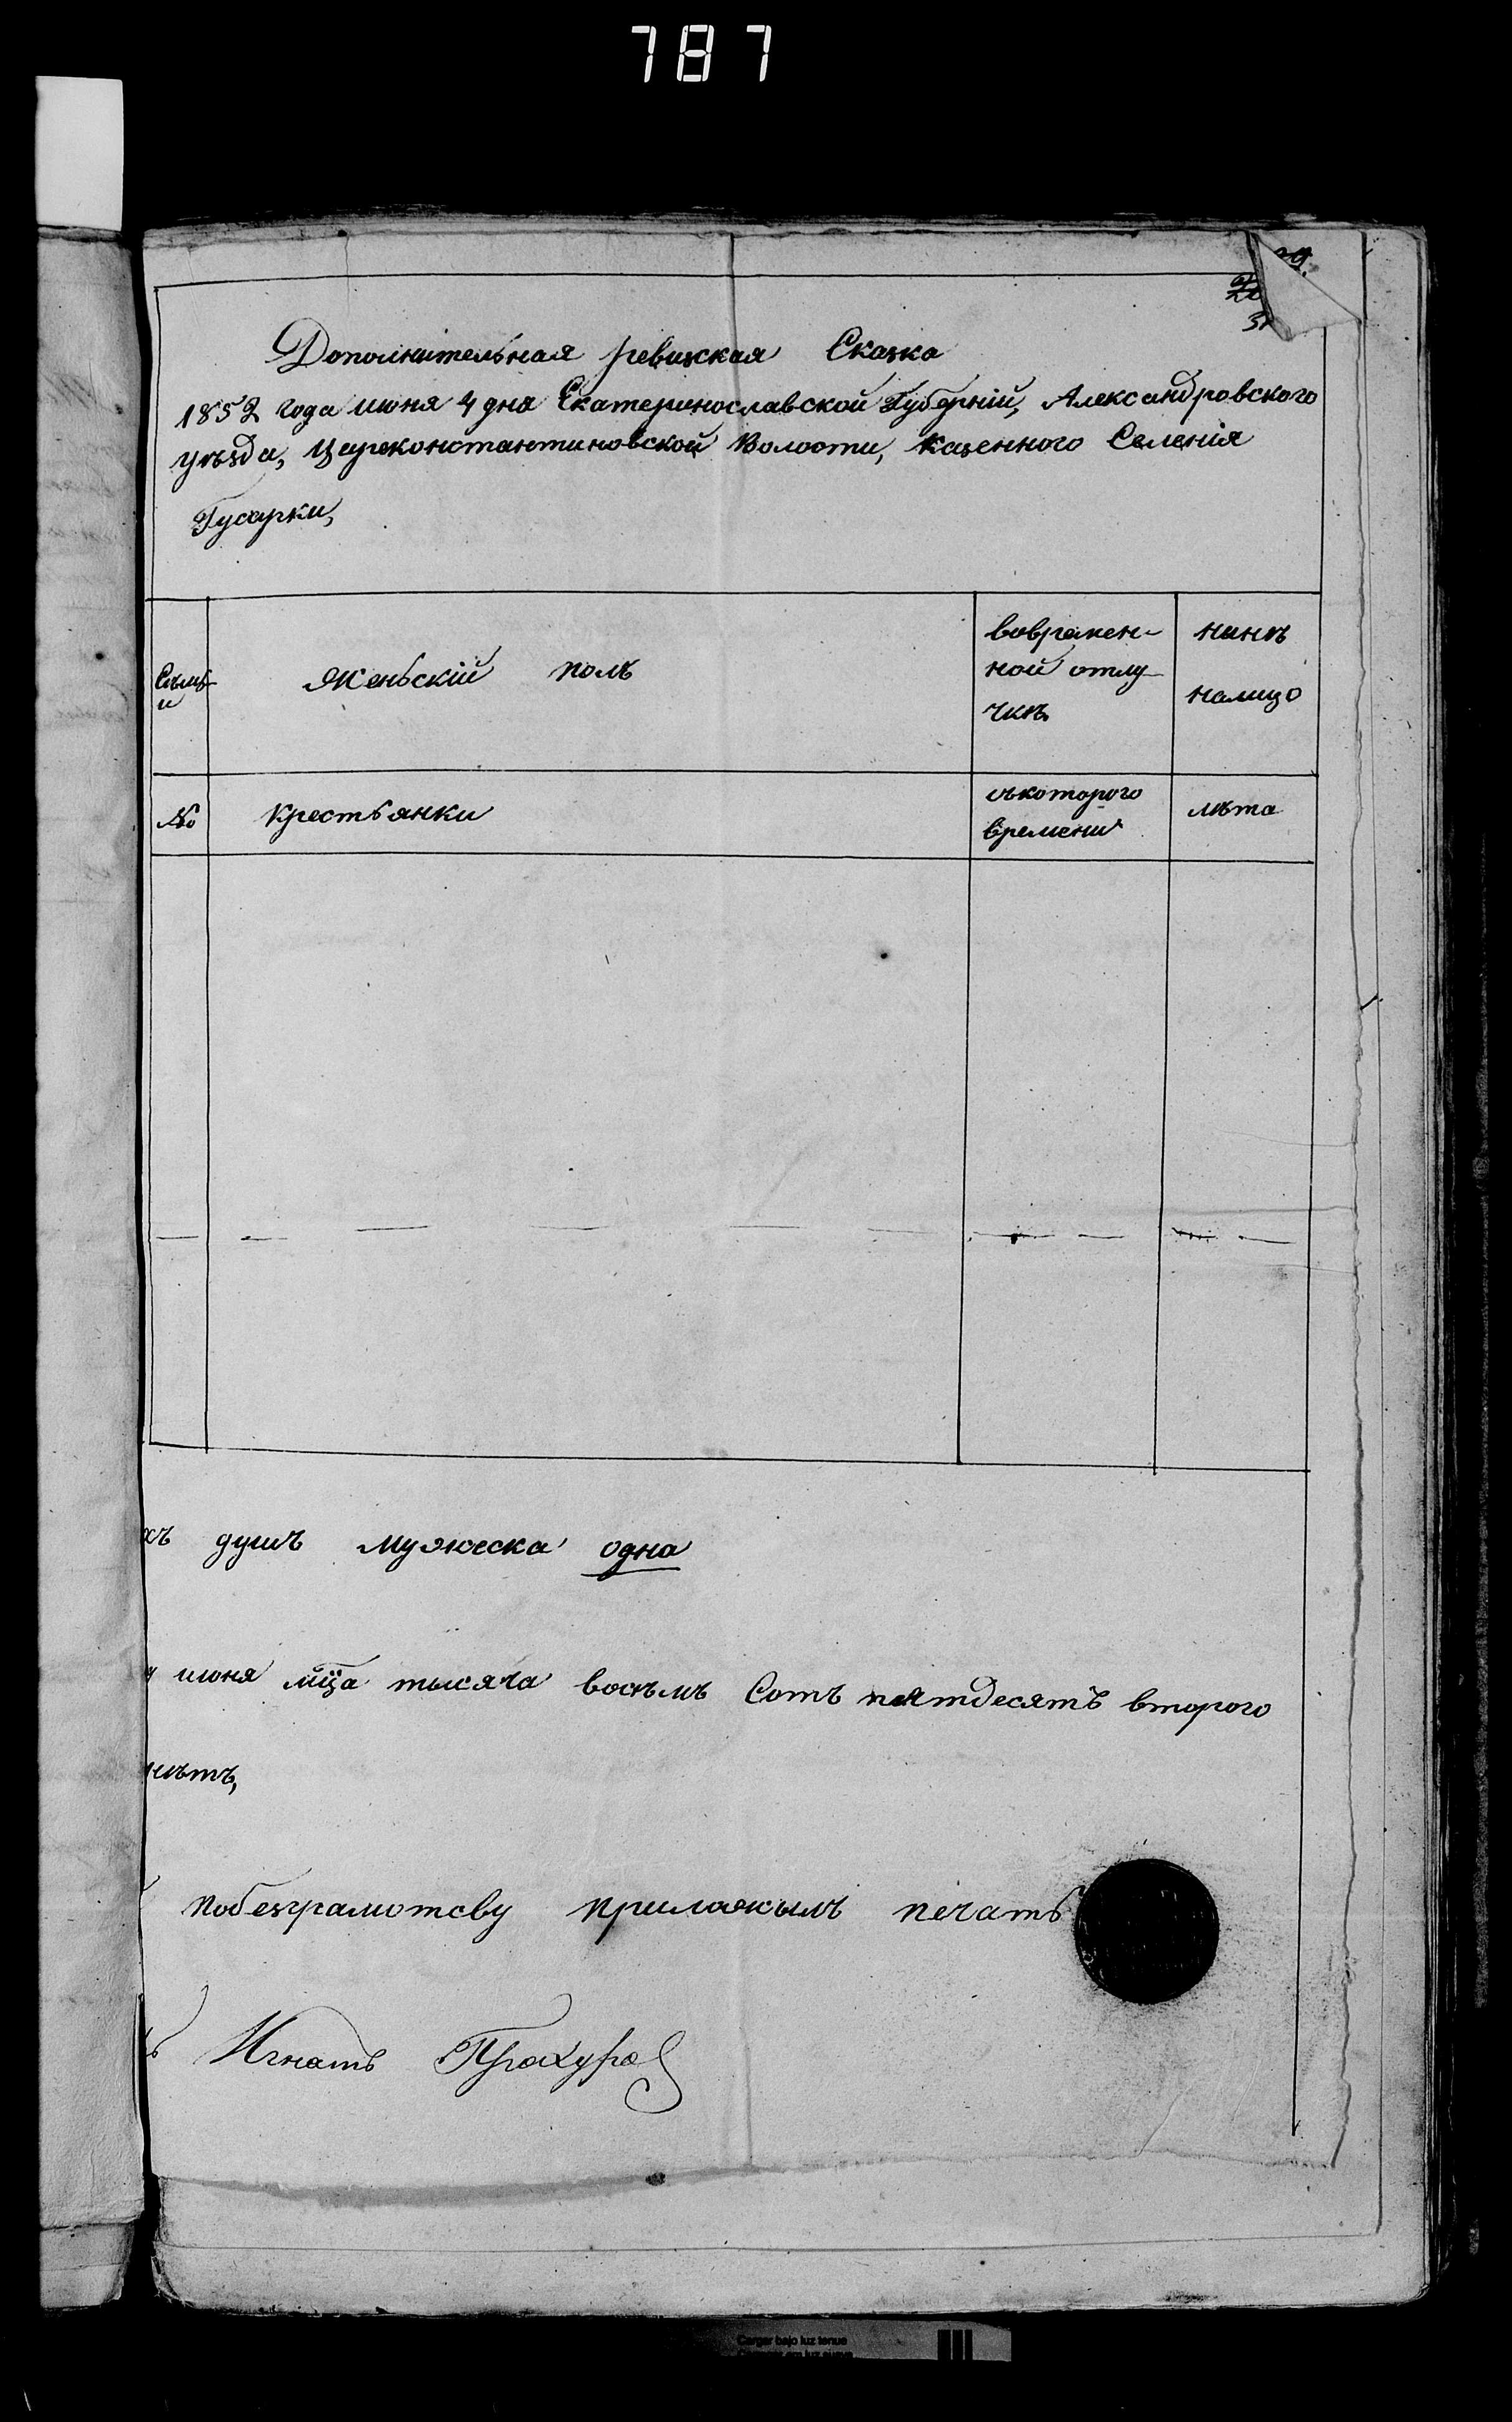 787
29.
Дополнительная ревизская Сказка
1852 года июня 4 дня Екатеринославской Губерніи, Александровского
уѣзда, Цареконстантиновской Волости, казенного Селенія
Гусарки,
Семьи
Женьскій полъ
вовремен-
ной отлу-
чкѣ
нинѣ
налицо
№
Крестьянки
съкоторого
времени
лѣта
хъ душъ мужеска одна
июня мц̃а тысяча восъмъ Сотъ пятдесятъ второго
нѣтъ,
побезграмотсву приложылъ печать
Игнатъ Прохуро
Cargar bajo luz tenue